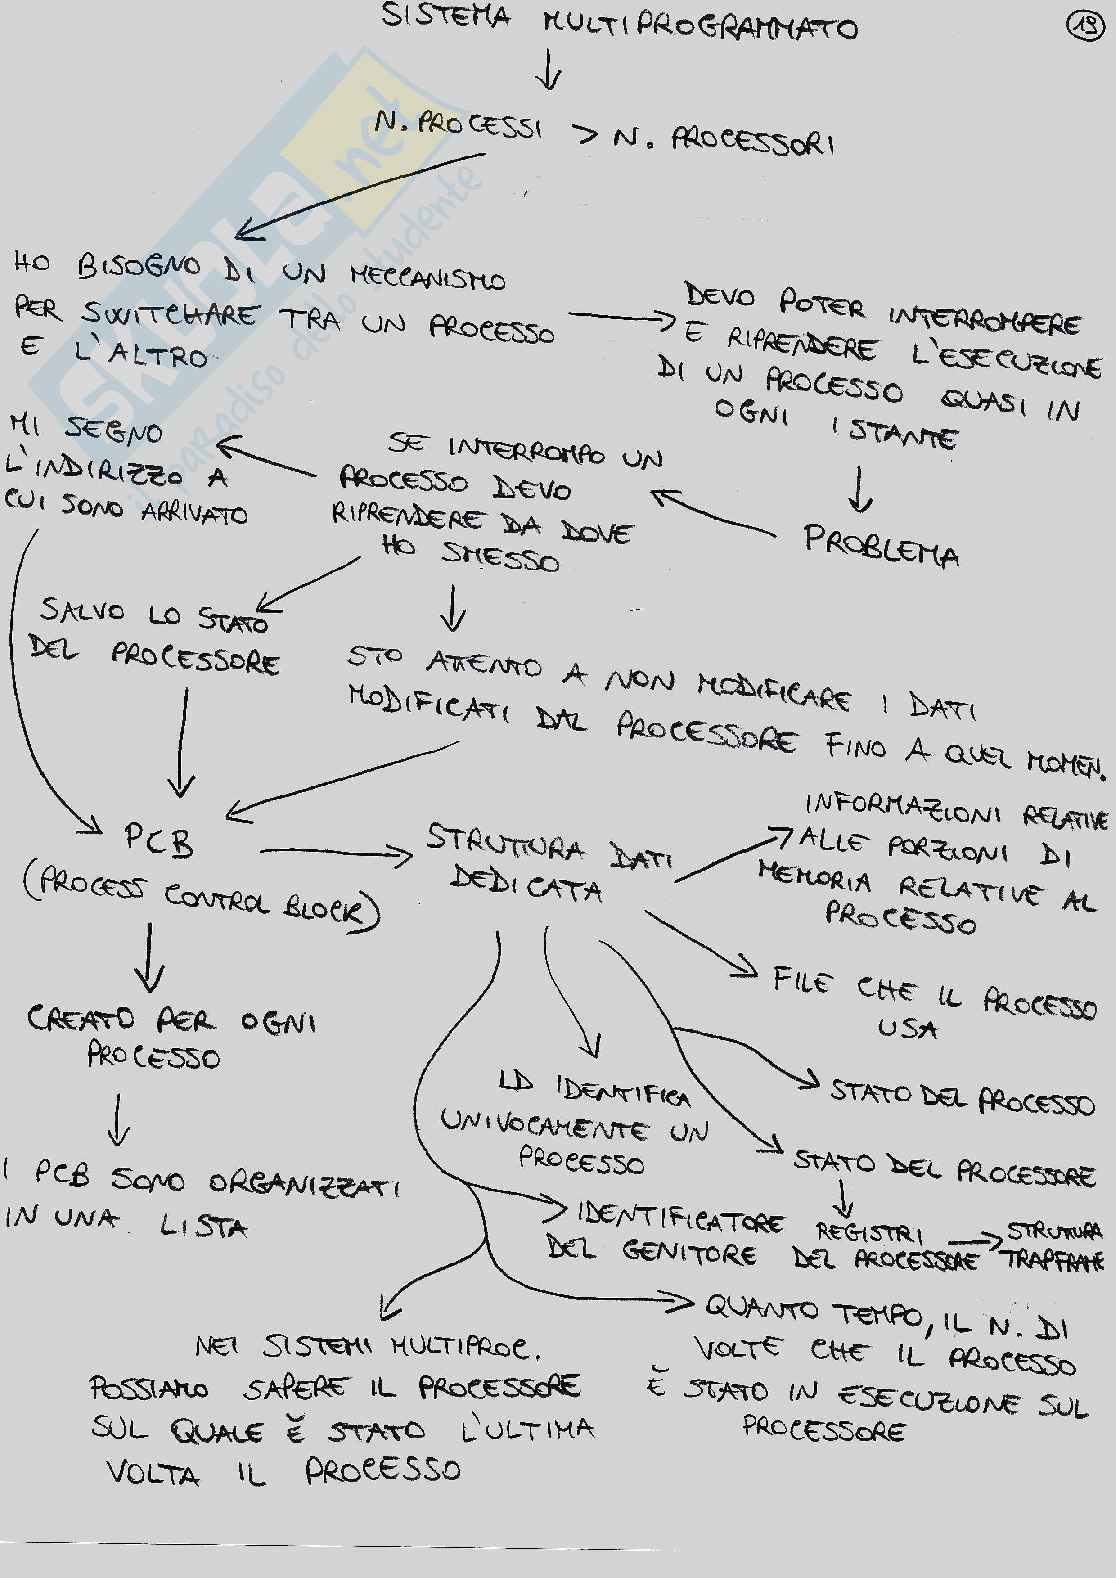 SISTEMA MULTIPROGRAMMATO
19
N. PROCESSI > N. PROCESSORI
HO BISOGNO DI UN MECCANISMO
PER SWITCHARE TRA UN PROCESSO
E L'ALTRO
DEVO POTER INTERROMPERE
E RIPRENDERE L'ESECUZIONE
DI UN PROCESSO QUASI IN
OGNI ISTANTE
PROBLEMA
SE INTERROMPO UN
PROCESSO DEVO
RIPRENDERE DA DOVE
HO SMESSO
MI SEGNO
L'INDIRIZZO A
CUI SONO ARRIVATO
SALVO LO STATO
DEL PROCESSORE
STO ATTENTO A NON MODIFICARE I DATI
MODIFICATI DAL PROCESSORE FINO A QUEL MOMEN.
PCB
(PROCESS CONTROL BLOCK)
STRUTTURA DATI
DEDICATA
INFORMAZIONI RELATIVE
ALLE PORZIONI DI
MEMORIA RELATIVE AL
PROCESSO
FILE CHE IL PROCESSO
USA
STATO DEL PROCESSO
STATO DEL PROCESSORE
REGISTRI
DEL PROCESSORE
STRUTTURA
TRAPFRAME
CREATO PER OGNI
PROCESSO
I PCB SONO ORGANIZZATI
IN UNA LISTA
ID IDENTIFICA
UNIVOCAMENTE UN
PROCESSO
IDENTIFICATORE
DEL GENITORE
QUANTO TEMPO, IL N. DI
VOLTE CHE IL PROCESSO
È STATO IN ESECUZIONE SUL
PROCESSORE
NEI SISTEMI MULTIPROC.
POSSIAMO SAPERE IL PROCESSORE
SUL QUALE È STATO L'ULTIMA
VOLTA IL PROCESSO
SKUOLA.net
il paradiso dello studente